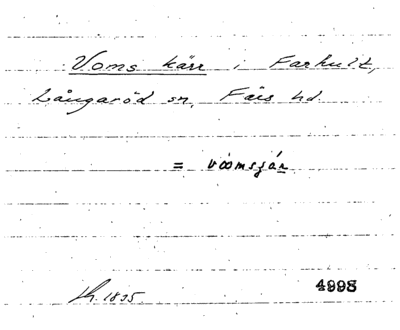 Voms kärr i Farhult,
Långaröd sn, Färs hd.
= vòmsȷár
Lh. 1895.
4998